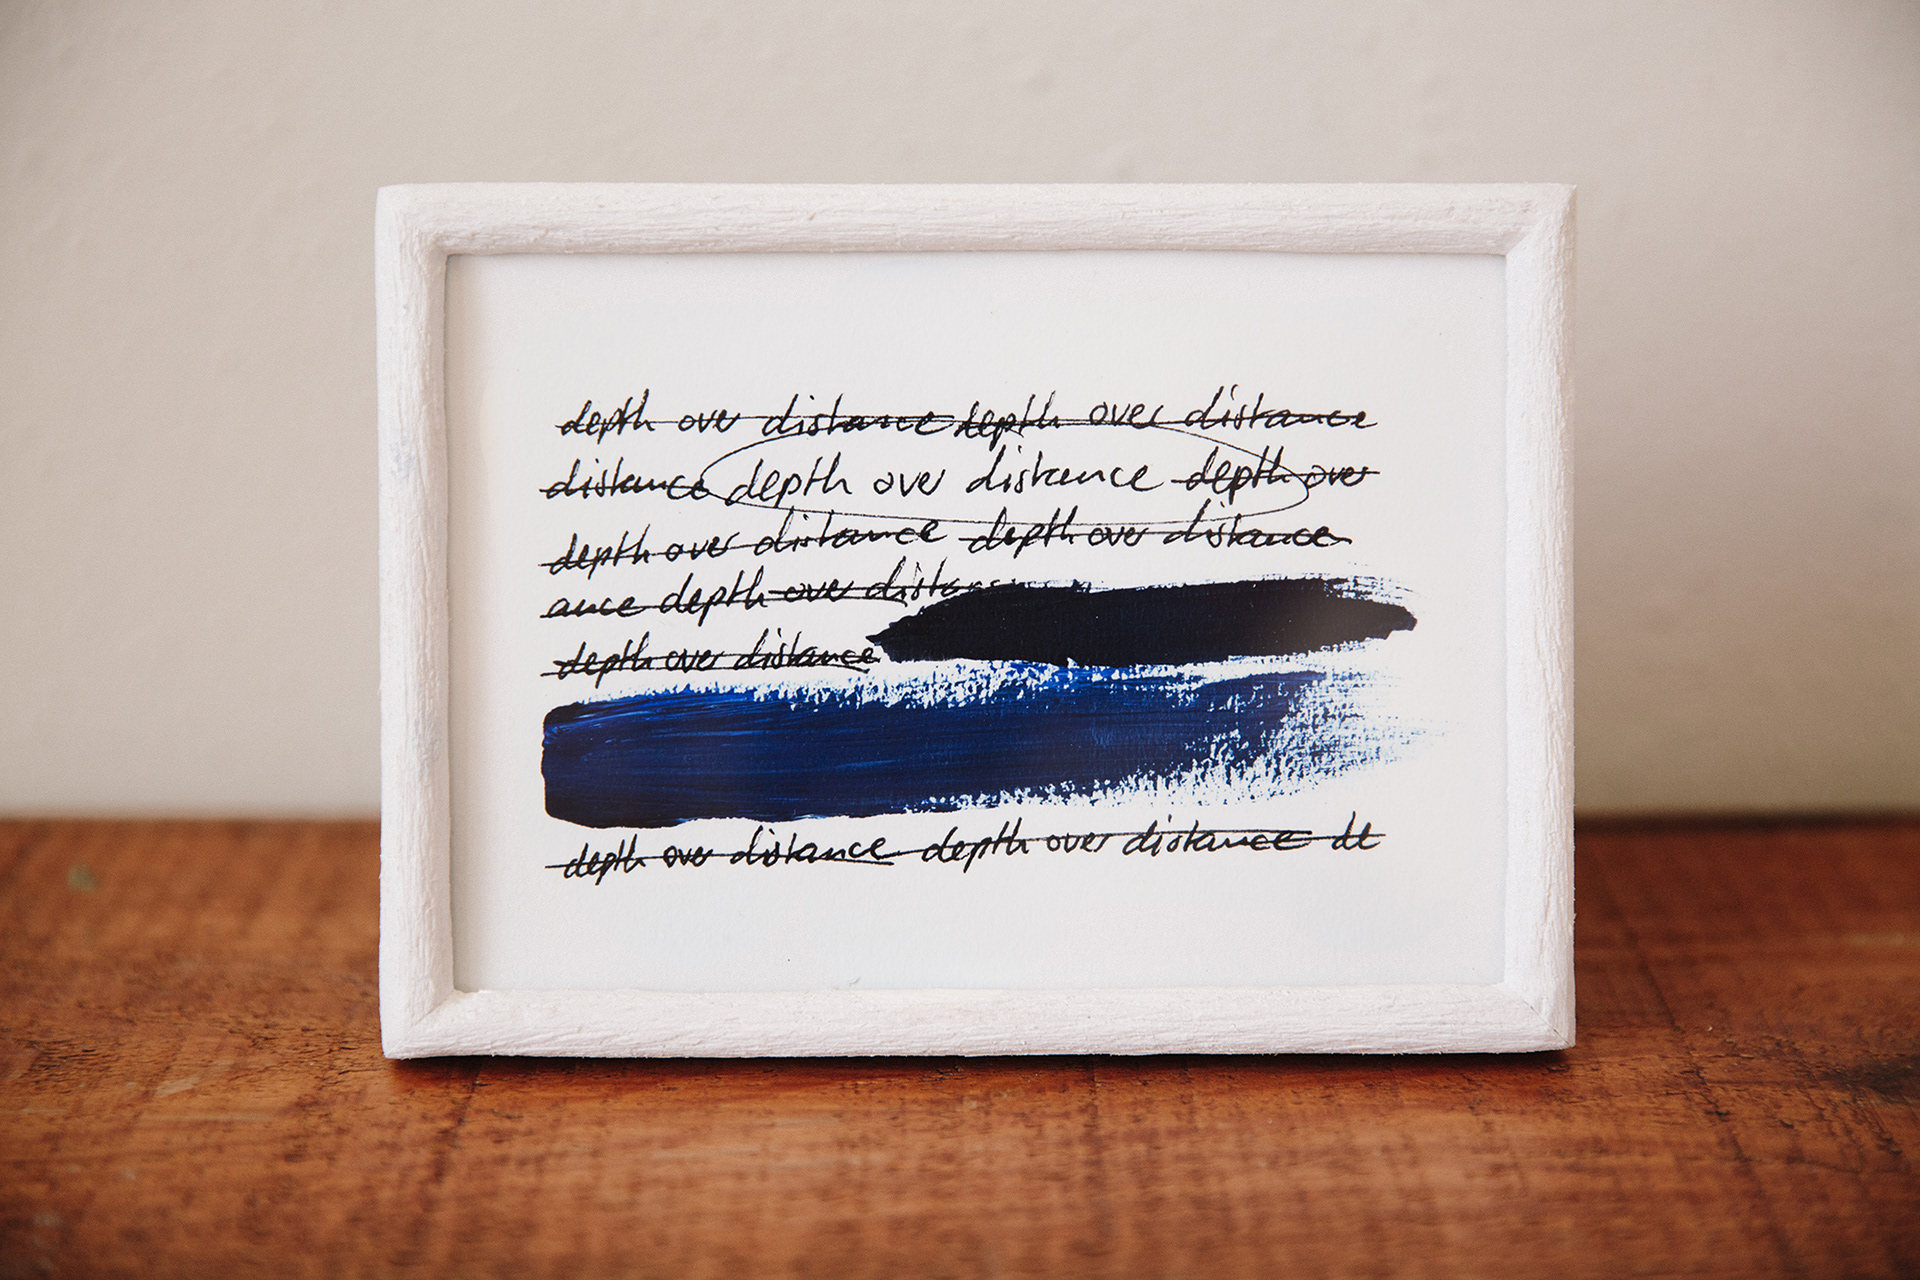 depth over distance depth over distance
distance depth over distance depth over
depth over distance depth over distance
ance depth over distance
depth over distance
depth over distance depth over distance de